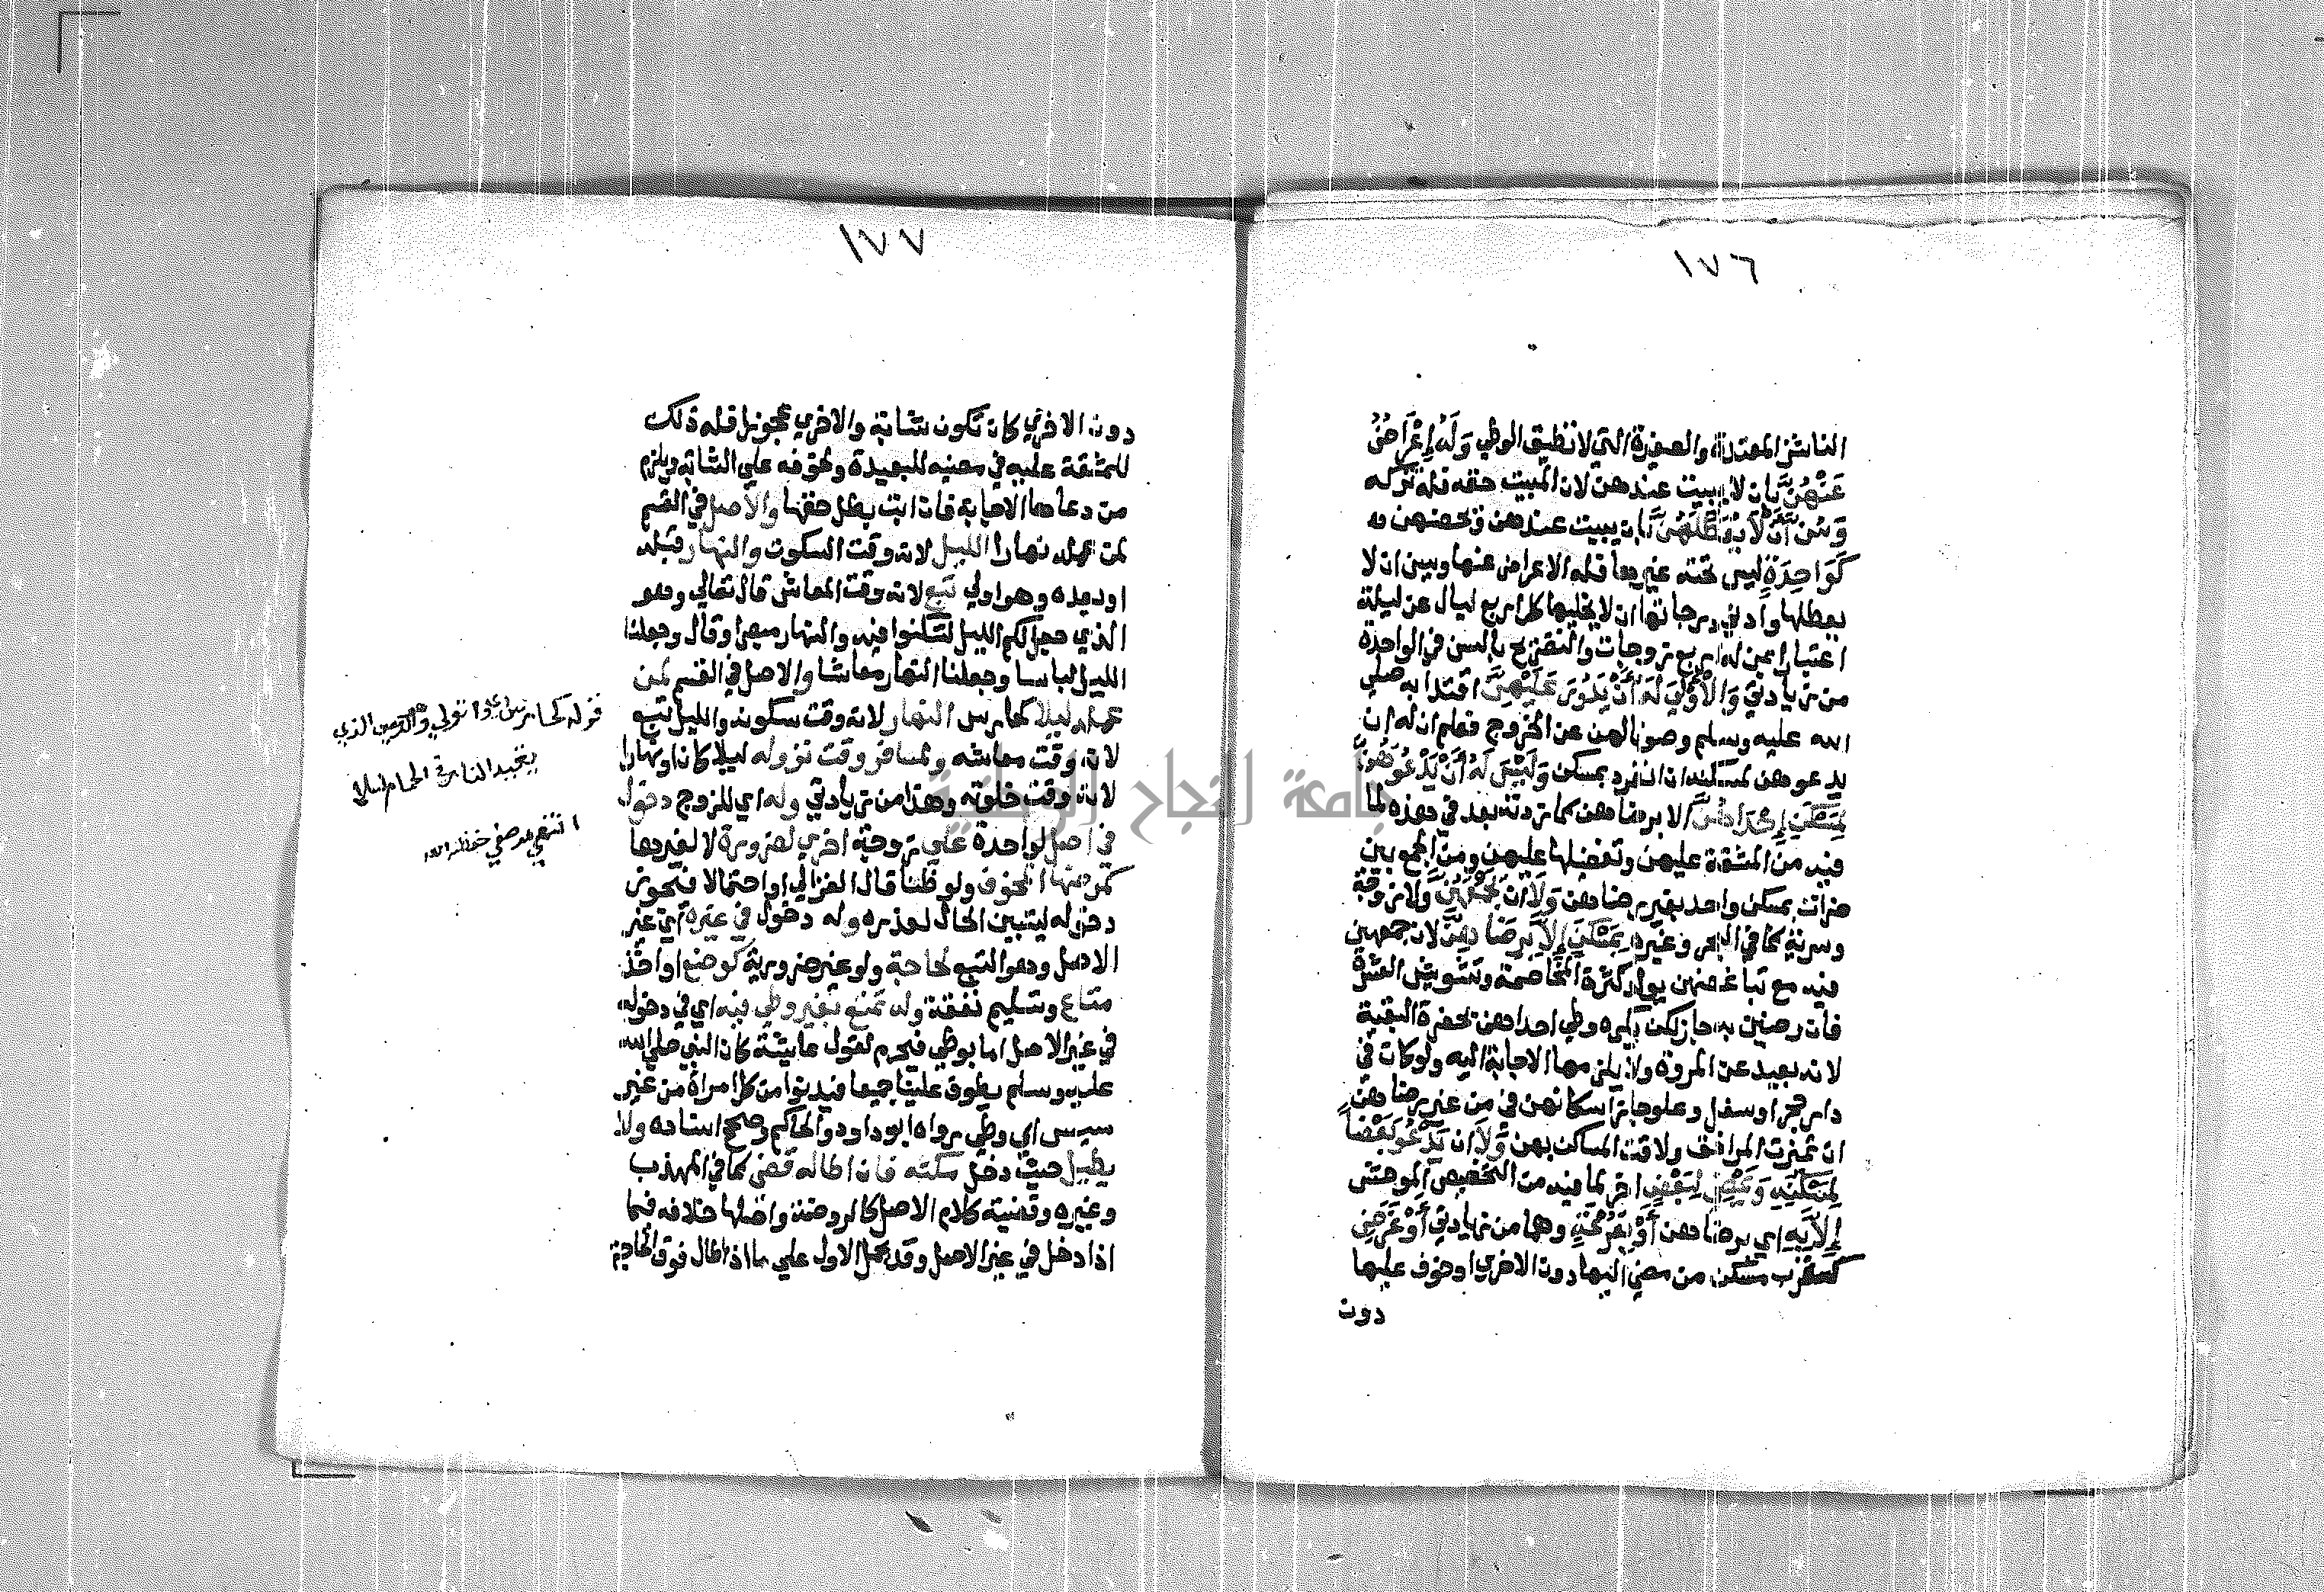 ١٧٦
الناشز المعتدة والصغيرة التي لا تطيق الوطي وَلَهُ إِعْرَاضٌ
عَنْهُنَّ بان لا يبيت عندهن لان المبيت حقه فله تركه
وَسُنَّ أَنْ لَا يُعَطِّلَهُنَّ بان يبيت عندهن ويحصنهن
كَوَاحِدَةٍ ليس تحته غيرها فله الاعراض عنها ويسن ان لا
يعطلها وادني درجاتها ان لا يخليها كل اربع ليال عن ليلة
اعتبارا بمن له اربع زوجات والتصريح بالسن في الواحدة
من زيادتي وَالْأَوْلَى لَهُ أَنْ يَدُورَ عَلَيْهِنَّ اقتدا به صلي
الله عليه وسلم وصونا لهن عن الخروج فعلم ان له ان
يدعوهن لمسكنه ان انفرد بمسكن وَلَيْسَ لَهُ أَنْ يَدْعُوَهُنَّ
لِمَسْكَنِ إِحْدَاهُنَّ الا برضاهن كما زدته بعد في هذه لما
فيه من المشقة عليهن وتفضيلها عليهن ومن الجمع بين
ضرات بمسكن واحد بغير رضاهن وَلَا أن يَجْمَعَهُنَّ ولا زوجة
وسرية كما في البحر وغيره بِمَسْكَنٍ إِلَّا بِرِضَاهُنَّ لان جمعهن
فيه مع تباغضهن يولد كثرة المخاصمة وتشويش العشرة
فان رضين به جاز لكن يكره وطي احداهن بحضرة البقية
لانه بعيد عن المروة ولا يلزمها الاجابة اليه ولو كان في
دار حجر او سفل وعلو جاز اسكانهن في من غير رضاهن
ان تميزت المرافق ولاقت المساكن بهن وَلَا ان يَدْعُوَ بَعْضًا
لِمَسْكَنِهِ وَيَمْضِيَ لِبَعْضٍ اخر لما فيه من التخصيص الموحش
إِلَّا بِهِ اي برضاهن أَوْ بِقُرْعَةٍ وهما من زيادتي أَوْ غَرَضٍ
كقرب مسكن من مضي اليها دون الاخري او خوف عليها
دون
١٧٧
دون الاخري كان تكون شابة والاخري عجوزا فله ذلك
للمشقة عليه في مضيه للبعيدة ولخوفه علي الشابة ويلزم
من دعاها الاجابة فان ابت بطل حقها والاصل في القسم
لمن عمله نهارا الليل لانه وقت السكون والنهار قبله
او بعده وهو اولي تبع لانه وقت المعاش قال تعالي وهو
الذي جعل لكم الليل لتسكنوا فيه والنهار مبصرا وقال وجعلنا
الليل لباسا وجعلنا النهار معاشا والاصل في القسم لمن
عمله ليلا كحارس النهار لانه وقت سكونه والليل تبع
لانه وقت معاشه ولمسافر وقت نزوله ليلا كان او نهارا
لانه وقت خلوته وهذا من زيادتي وله اي للزوج دخول
في اصل لواحدة علي زوجة اخري لضرورة لا لغيرها
كمرضها المخوف ولو ظنا قال الغزالي او احتمالا فيجوز
دخوله ليتبين الحال لعذره وله دخول في غيره اي غير
الاصل وهو التبع لحاجة ولو غير ضرورية كوضع او اخذ
متاع وتسليم نفقة وله تمتع بغير وطي فيه اي في دخوله
في غير الاصل اما بوطي فيحرم لقول عايشة كان النبي صلي الله
عليه وسلم يطوف علينا جميعا فيدنوا من كل امراة من غير
مسيس اي وطي رواه ابو داود والحاكم وصحح اسناده ولا
يطيل حيث دخل مكثه فان اطاله قضي كما في المهذب
وغيره وقضية كلام الاصل كالروضة واصلها خلافه فيما
اذا دخل في غير الاصل وقد يحمل الاول علي ما اذا طال فوق الحاجة
قوله كحارس اتوني والذي
يقيد النار في الحمام ليلا
انتهي مرصفي
جامعة النجاح الوطنية